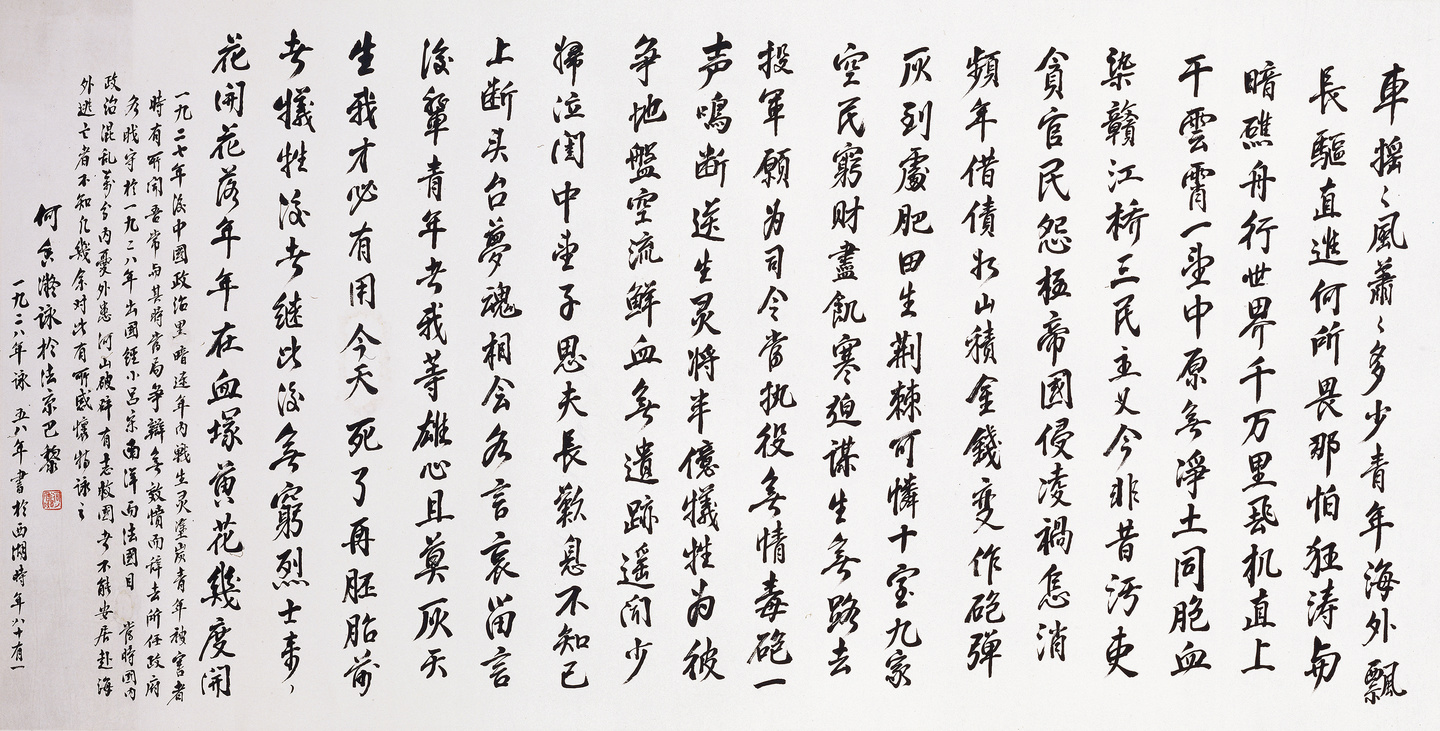 車摇〻風蕭〻多少青年海外飄
長驅直進何所畏那怕狂涛与
暗礁舟行世界千万里飛机直上
干雲霄一望中原無淨土同胞血
染贛江桥三民主义今非昔污吏
貪官民怨極帝國侵凌禍怎消
頻年借債如山積金錢变作砲弹
灰到處肥田生荆棘可憐十室九家
空民窮財盡飢寒迫謀生無路去
投軍願为司令當执役無情毒砲一
声鳴断送生灵将半億犧牲为彼
争地盤空流鮮血無遺跡遥闻少
婦泣闺中望子思夫長歎息不知已
上断头台夢魂相会名言哀留言
後輩青年者我等雄心且莫灰天
生我才必有用今天死了再胚胎前
者犧牲後者继此後無窮烈士来，
花開花落年年在血塚黄花幾度開
一九二七年後中國政治黑暗連年内戰生灵塗炭青年被害者
時有所闻吾常与其將當局争辯無效憤而辞去所任政府
名戝守於一九二八年出國經小吕宋南洋而法國目當時国内
政治混乱萬分内憂外患河山破碎有志救国者不能安居赴海
外逃亡者不知凡幾余对此有所感懷特詠之
何香凝詠於法京巴黎
一九二八年詠 五八年書於西湖時年八十有一